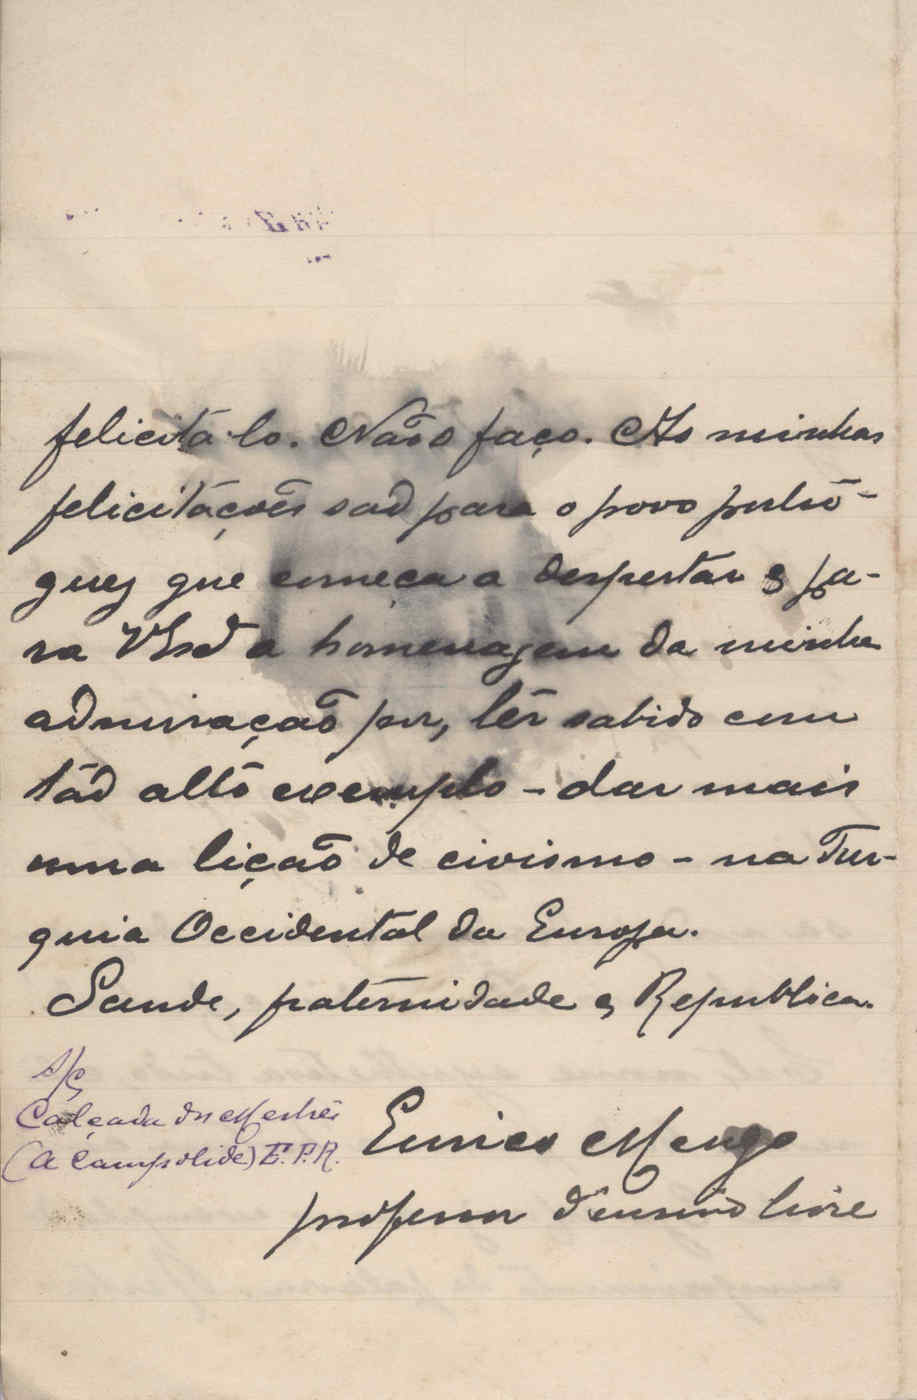 felicitá-lo. Não o faço. As minhas
felicitações são para o povo portu-
guez que começa a despertar e pa-
ra VExª a homenagem da minha
admiração por, têr sabido com
tão alto exemplo - dar mais
uma lição de civismo - na Tur-
quia Occidental da Europa.
Saude, fraternidade e Republica.
S/C
Calçada dos Mestres
(a Campolide) E.P.R.
Eurico Mengo
professor d'ensino livre